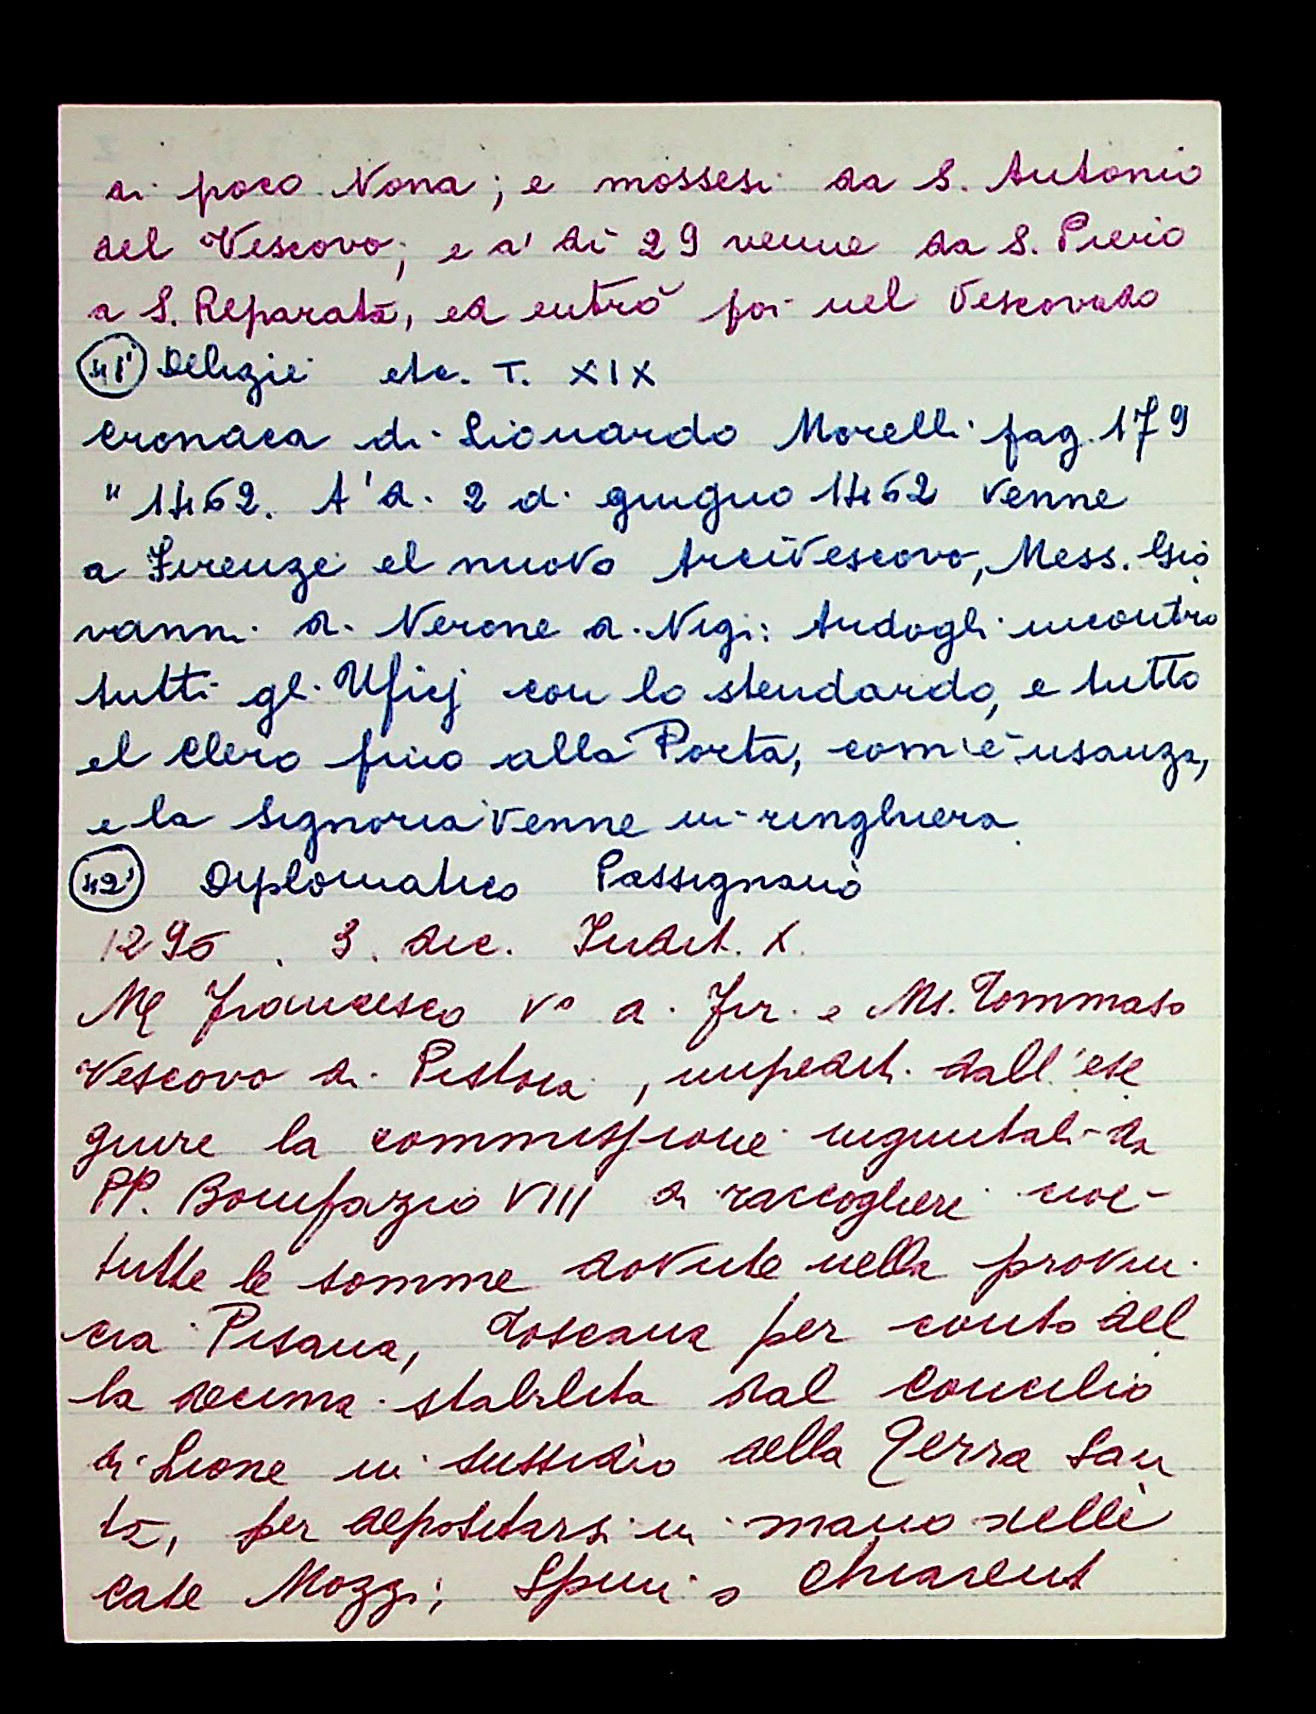 di poco Nona; e mossesi da S. Antonio
del Vescovo; e a' dì 29 venne da S. Piero
a S. Reparata, ed entrò poi nel Vescovado
41' Delizie etc. T. XIX
Cronaca di Lionardo Morelli pag. 179
" 1462. A' dì 2 di giugno 1462 venne
a Firenze el nuovo Arcivescovo, Mess. Gio
vanni di Nerone di Nigi: Andogli incontro
tutti gl. Uficj con lo stendardo, e tutto
el Clero fino alla Porta, com'è usanza,
e la Signoria venne in ringhiera.
42' Diplomatico Passignano
129 . 3. dic. Indit. X.
Francesco Vo di Fir. e Ms. Tommaso
Vescovo di Pistoia, impediti dall'ese
guire la commissione ingiuntali da
PP. Bonifazio VIII di raccogliere cioè
tutte le somme dovute nella provin
cia Pisana, Toscana per conto del
la decima stabilita dal Concilio
di Lione in sussidio della Terra San
ta, per depositarsi in mano delle
case Mozzi, Spini o Chiarent